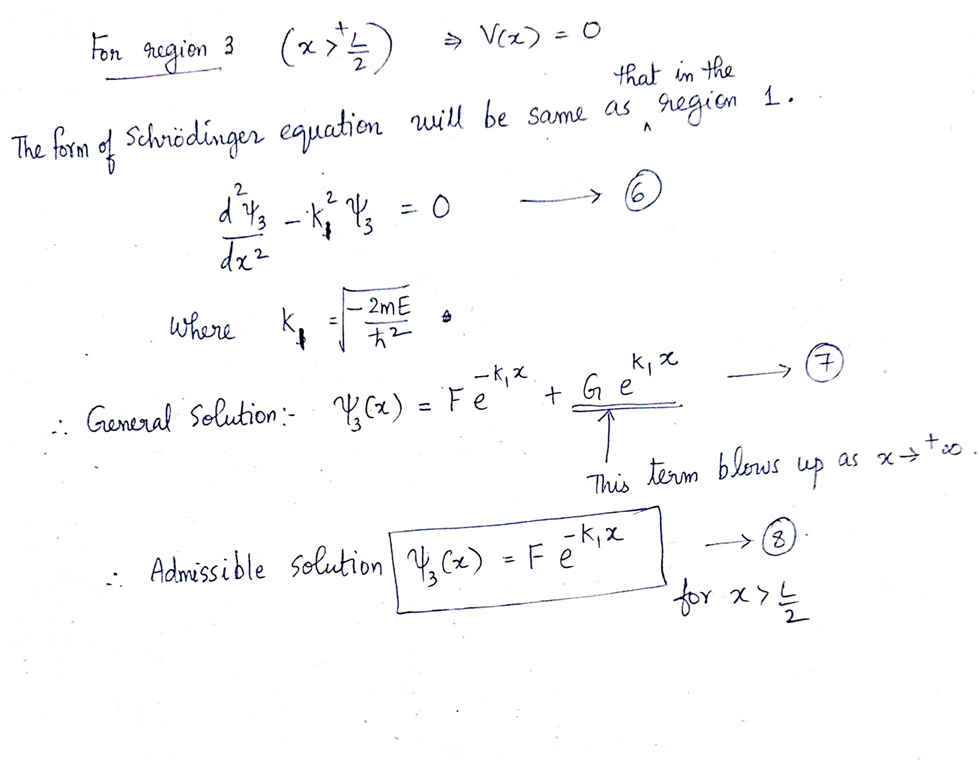 For region 3 (x > +L/2) ⇒ V(x) = 0
The form of Schrödinger equation will be same as that in the region 1.
d²ψ₃/dx² - k₁² ψ₃ = 0 ⟶ ⑥
where k₁ = √(-2mE/ħ²).
∴ General Solution:- ψ₃(x) = F e^(-k₁x) + G e^(k₁x) ⟶ ⑦
This term blows up as x → +∞.
∴ Admissible solution ψ₃(x) = F e^(-k₁x) ⟶ ⑧.
for x > L/2